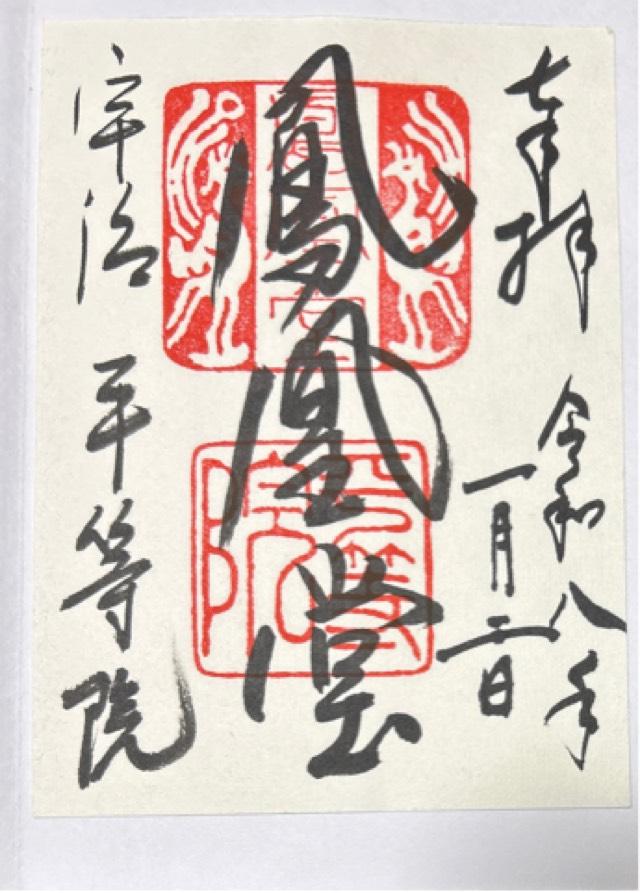 奉拝
令和八年
一月二日
鳳凰堂
宇治 平等院
平等院